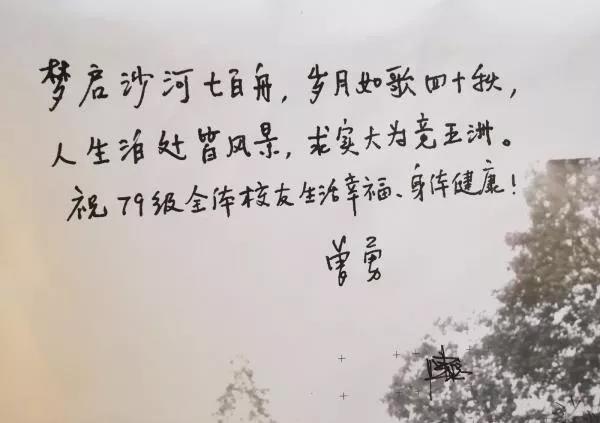 梦启沙河七百舟，岁月如歌四十秋，
人生泊处皆风景，求实大为竞亚洲。
祝79级全体校友生活幸福、身体健康！
曾勇